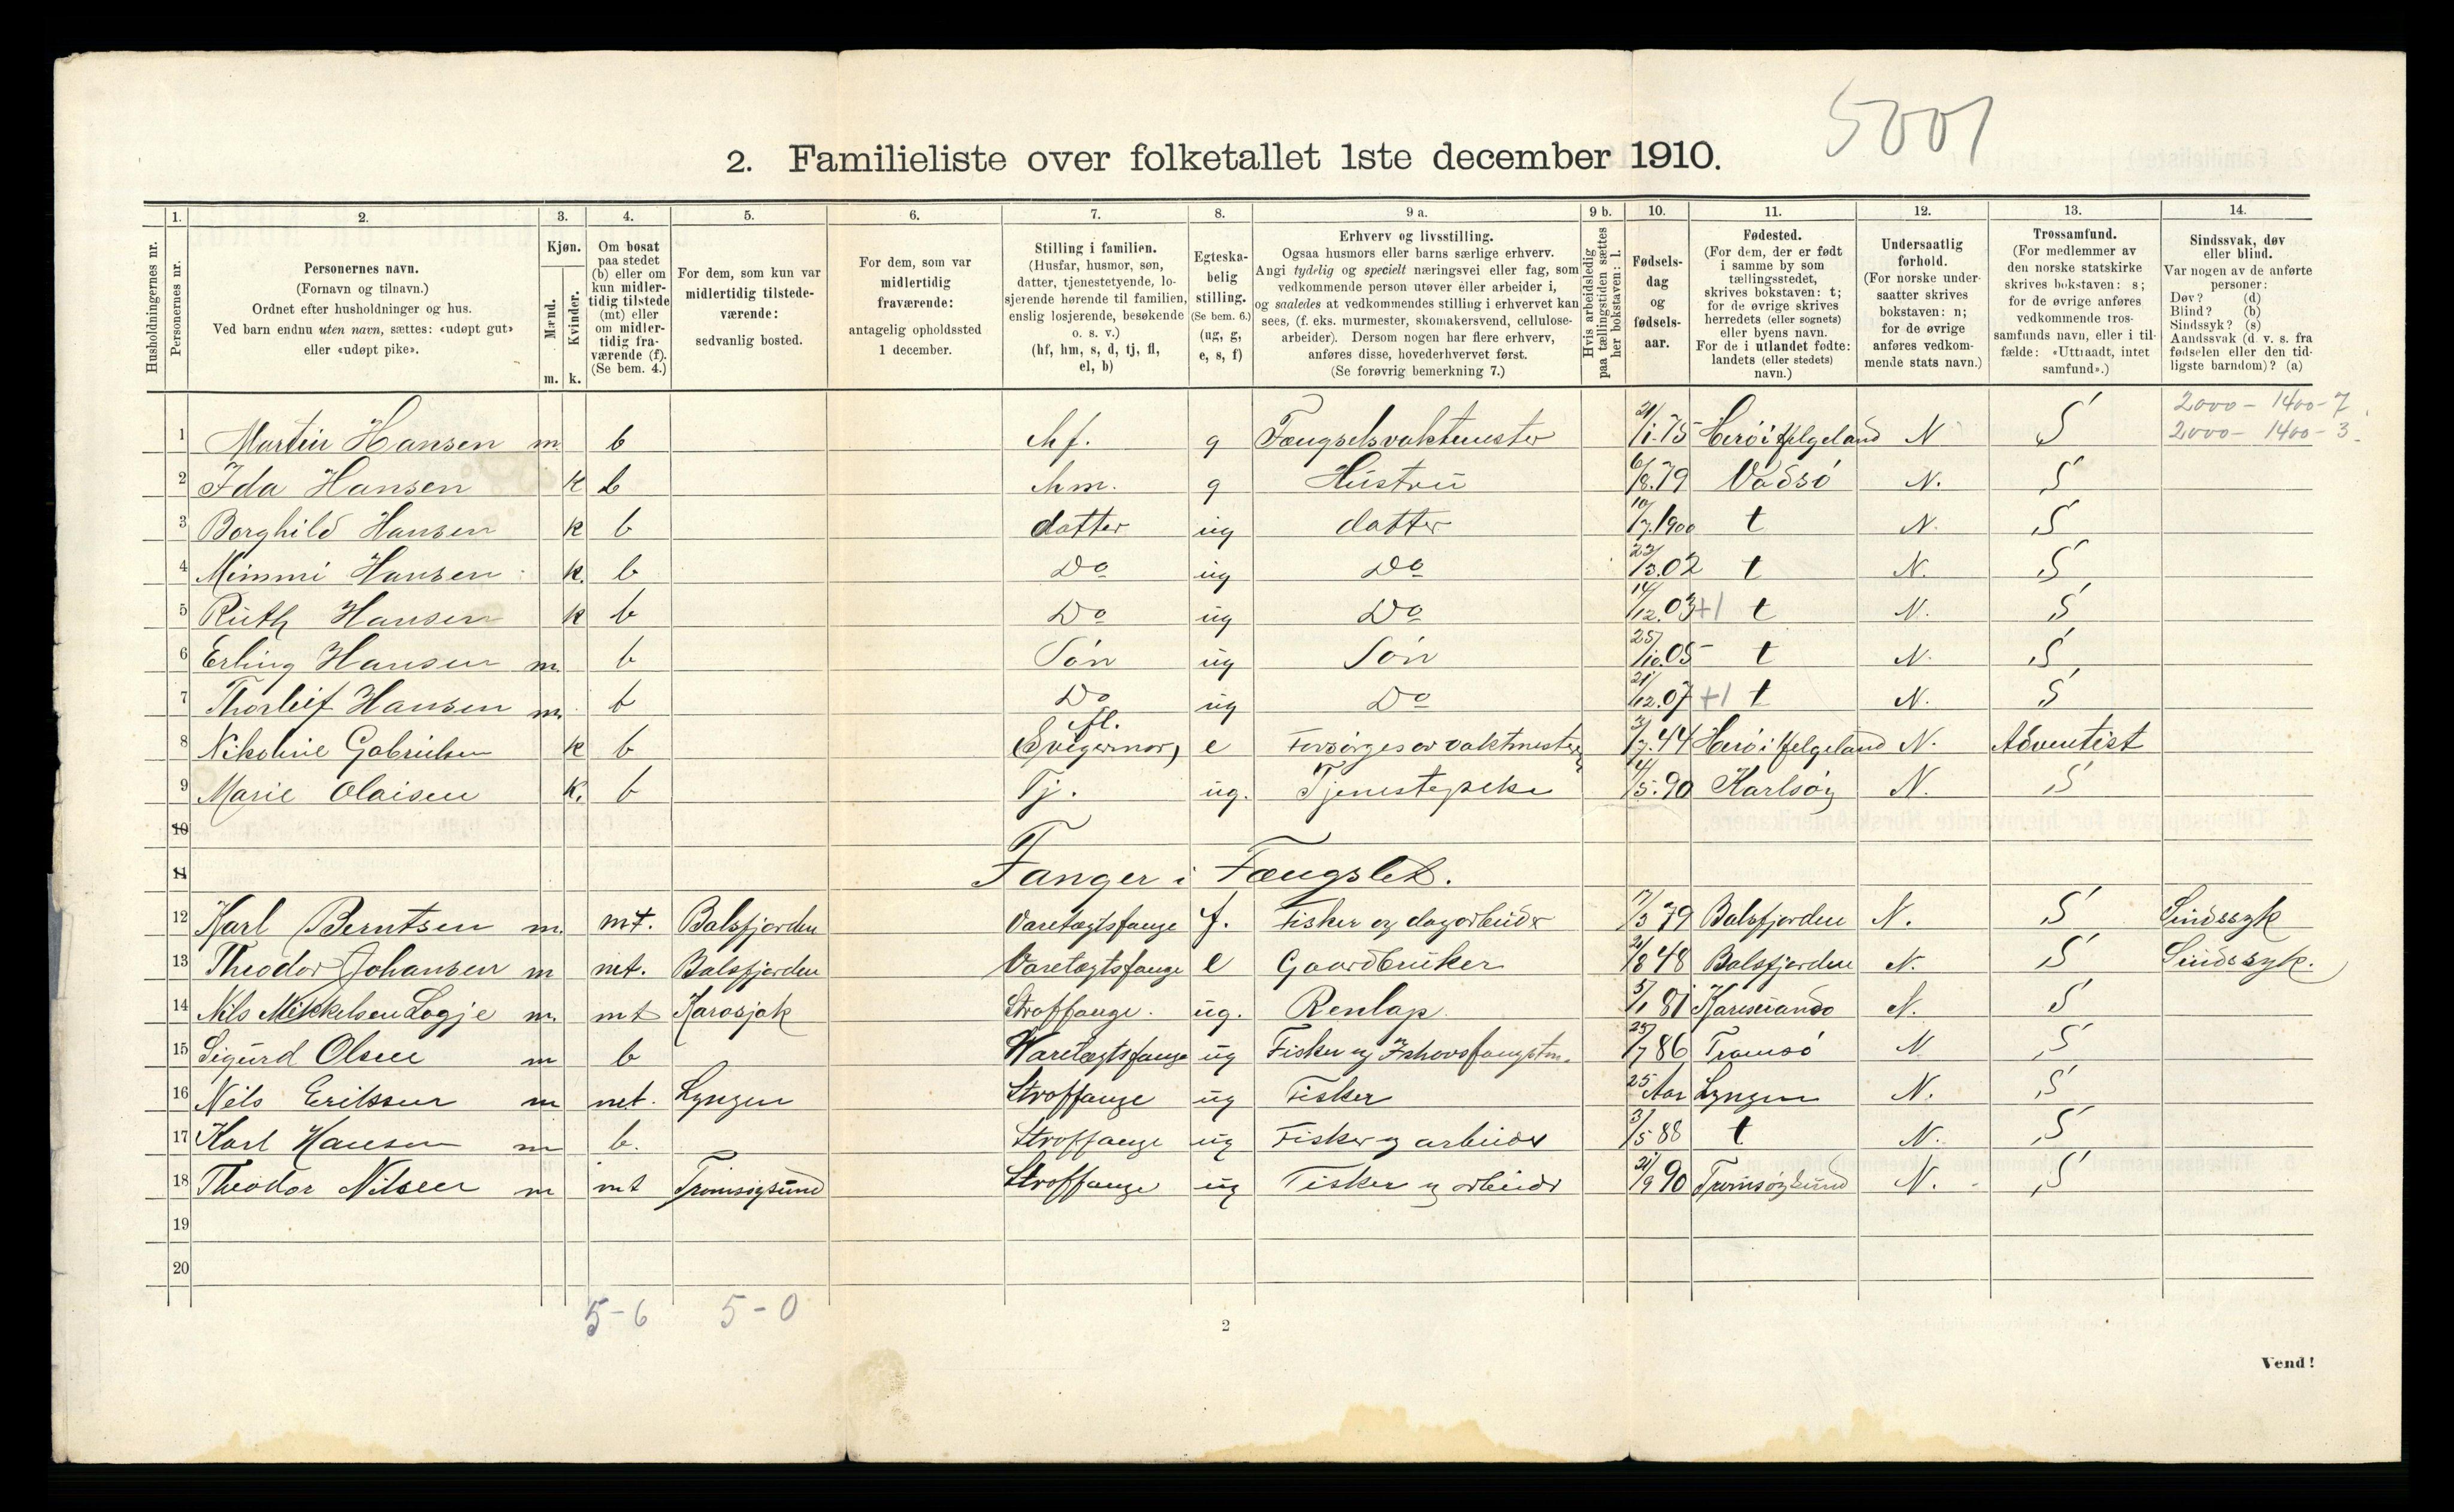 5001
2. Familieliste over folketallet 1ste december 1910.
1. 2. 3. 4. 5. 6. 7. 8. 9 a. 9 b. 10. 11. 12. 13. 14.
Husholdningernes nr.
Personernes nr.
Personernes navn.
(Fornavn og tilnavn.)
Ordnet efter husholdninger og hus.
Ved barn endnu uten navn, sættes: «udøpt gut»
eller «udøpt pike».
Kjøn.
Mænd.
Kvinder.
m. k.
Om bosat
paa stedet
(b) eller om
kun midler-
tidig tilstede
(mt) eller
om midler-
tidig fra-
værende (f).
(Se bem. 4.)
For dem, som kun var
midlertidig tilstede-
værende:
sedvanlig bosted.
For dem, som var
midlertidig
fraværende:
antagelig opholdssted
1 december.
Stilling i familien.
(Husfar, husmor, søn,
datter, tjenestetyende, lo-
sjerende hørende til familien,
enslig losjerende, besøkende
o. s. v.)
(hf, hm, s, d, tj, fl,
el, b)
Egteska-
belig
stilling.
(Se bem. 6.)
(ug, g,
e, s, f)
Erhverv og livsstilling.
Ogsaa husmors eller barns særlige erhverv.
Angi tydelig og specielt næringsvei eller fag, som
vedkommende person utøver eller arbeider i,
og saaledes at vedkommendes stilling i erhvervet kan
sees, (f. eks. murmester, skomakersvend, cellulose-
arbeider). Dersom nogen har flere erhverv,
anføres disse, hovederhvervet først.
(Se forøvrig bemerkning 7.)
Hvis arbeidsledig
paa tællingstiden sættes
her bokstaven: l.
Fødsels-
dag
og
fødsels-
aar.
Fødested.
(For dem, der er født
i samme by som
tællingsstedet,
skrives bokstaven: t;
for de øvrige skrives
herredets (eller sognets)
eller byens navn.
For de i utlandet fødte:
landets (eller stedets)
navn.)
Undersaatlig
forhold.
(For norske under-
saatter skrives
bokstaven: n;
for de øvrige
anføres vedkom-
mende stats navn.)
Trossamfund.
(For medlemmer av
den norske statskirke
skrives bokstaven: s;
for de øvrige anføres
vedkommende tros-
samfunds navn, eller i til-
fælde: «Uttraadt, intet
samfund».)
Sindssvak, døv
eller blind.
Var nogen av de anførte
personer:
Døv? (d)
Blind? (b)
Sindssyk? (s)
Aandssvak (d. v. s. fra
fødselen eller den tid-
ligste barndom)? (a)
2000 - 1400 - 7
1 Martin Hansen m. b hf. g Fængselsvaktmester 21/1.75 Herø i Helgeland N S 2000 - 1400 - 3
2 Ida Hansen k b hm. g Hustru 6/8.79 Vadsø N. S
3 Borghild Hansen k b datter ug datter 10/7.1900 t N. S
4 Mimmi Hansen k. b Do ug Do 23/3.02 t N. S
5 Ruth Hansen k b Do ug Do 14/12.03 +1 t N. S
6 Erling Hansen m. b Søn ug Søn 25/10.05 t N. S
7 Thorleif Hansen m. b Do ug Do 21/12.07 +1 t N. S
fl.
8 Nikoline Gabrielsen k b (Svigermor) e Forsørges av vaktmester 3/7.44 Herø i Helgeland N. Adventist
9 Marie Olaisen k. b Tj. ug. Tjenestepike 4/5.90 Karlsøy N. S
10
11 Fanger i Fængslet.
12 Karl Berntsen m. mt. Balsfjorden Varetægtsfange f. Fisker og dagarbeider 17/3 79 Balsfjorden N. S Sindssyk
13 Theodor Johansen m mt. Balsfjorden Varetægtsfange e Gaardbruker 21/8 48 Balsfjorden N. S Sindssyk.
14 Nils Mikkelsen Logje m. mt Karasjok Straffange. ug. Renlap 5/1 81 Karesuando N. S
15 Sigurd Olsen m b Waretægtsfange ug Fisker og Ishavsfangstm. 25/7 86 Tromsø N S
16 Nils Eriksen m mt. Lyngen Straffange ug Fisker 25 Aar Lyngen N. S
17 Karl Hansen m b. Straffange ug Fisker og arbeider 3/5 88 t N. S
18 Theodor Nilsen m mt Tromsøysund Straffange ug Fisker og arbeider 21/9 90 Tromsøysund N. S
19
20
5-6 5-0
2
Vend!